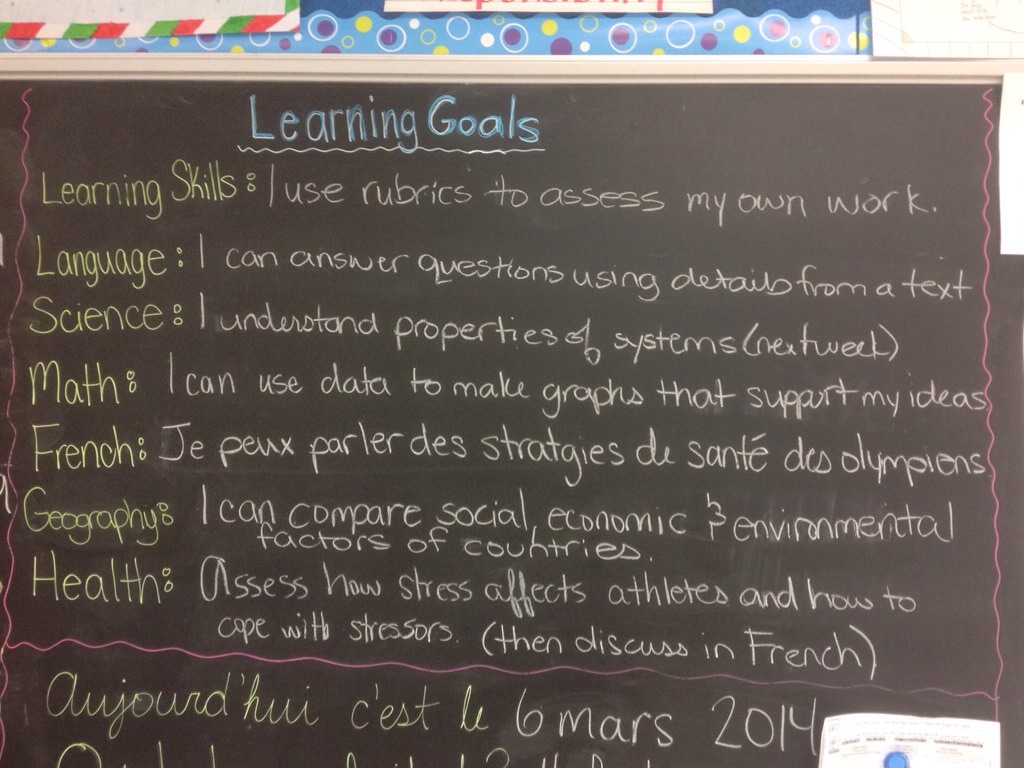 Learning Goals
Learning Skills: I use rubrics to assess my own work.
Language: I can answer questions using details from a text
Science: I understand properties of systems (next week)
Math: I can use data to make graphs that support my ideas
French: Je peux parler des stratgies de santé des olympiens
Geography: I can compare social, economic & environmental
factors of countries.
Health: Assess how stress affects athletes and how to
cope with stressors. (then discuss in French)
Aujourd'hui c'est le 6 mars 2014